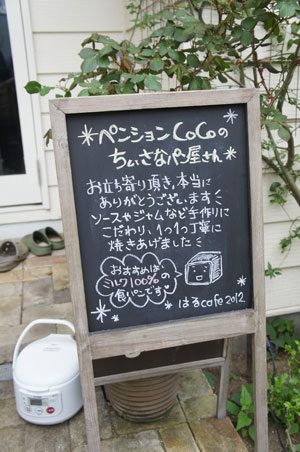 ペンションCoCoの
ちいさなパン屋さん
お立ち寄り頂き、本当に
ありがとうございます
ソースやジャムなど手作りに
こだわり、1つ1つ丁寧に
焼きあげました
おすすめは
ミルク100%の
食パンです
はるcafe 2012